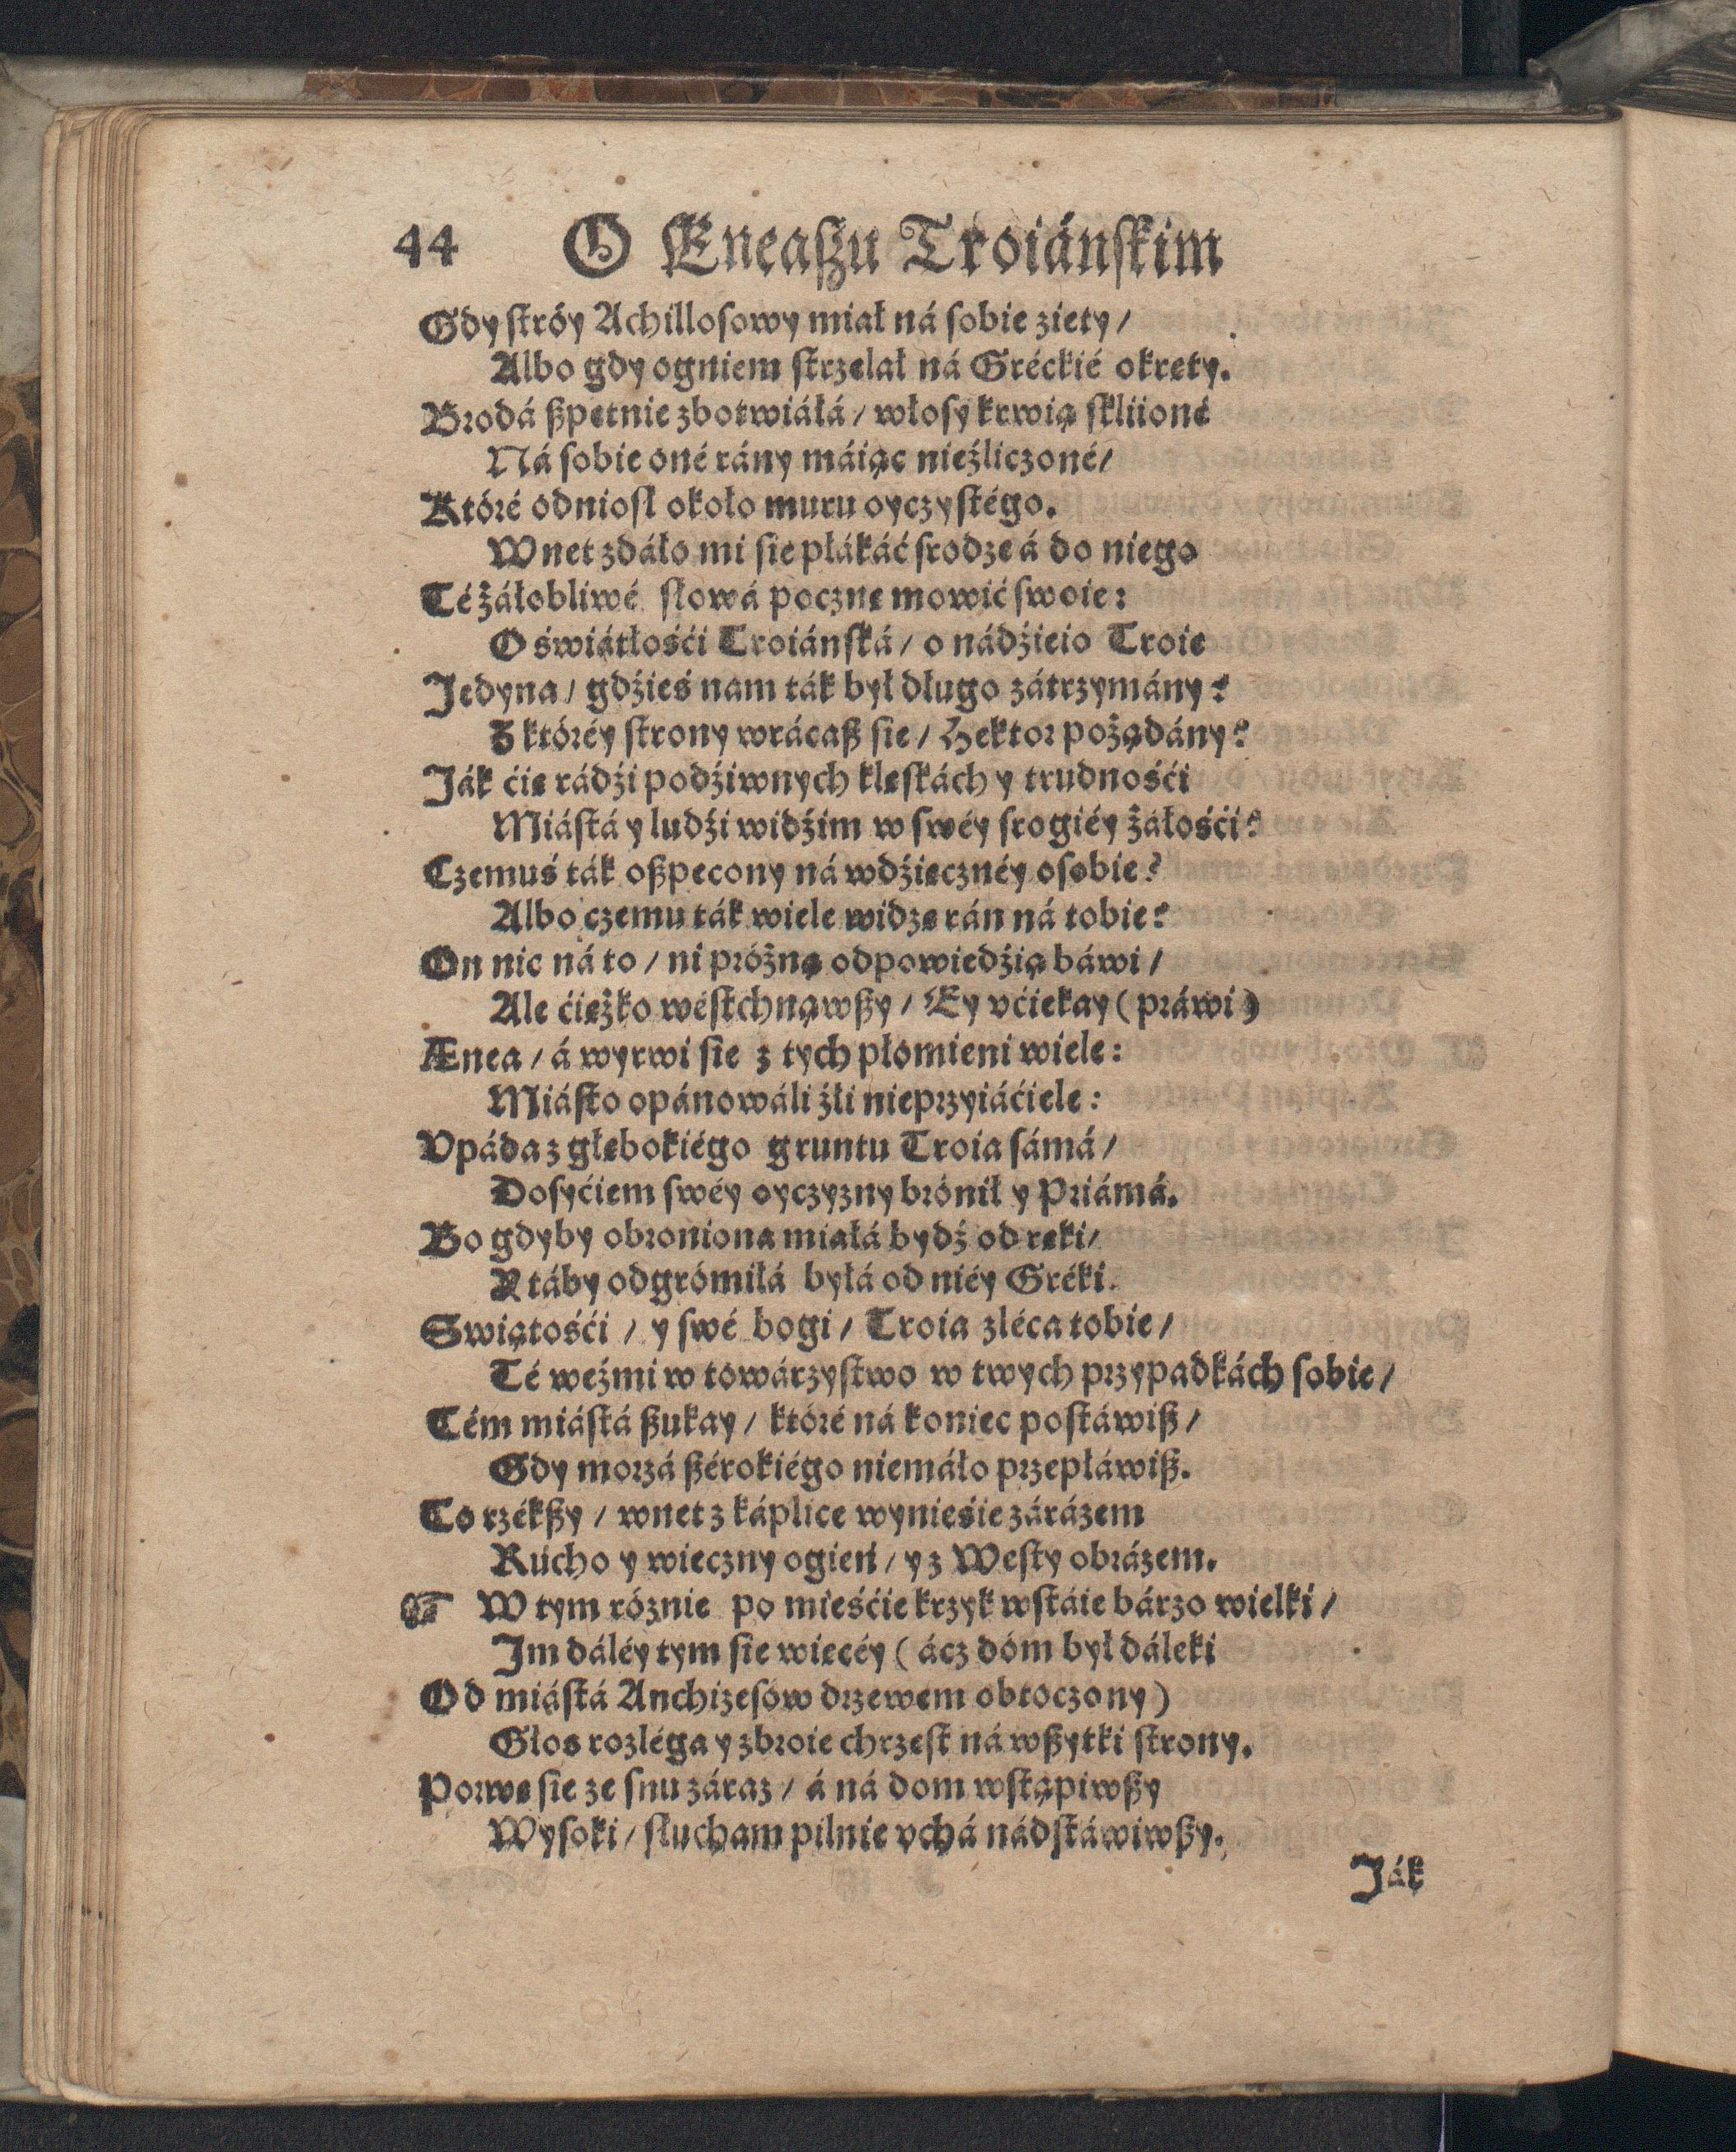 44 O Eneaſzu Troiánſkim
Gdy ſtróy Achilloſowy miał ná ſobie zięty/
Albo gdy ogniem ſtrzelał ná Gréckié okręty.
Brodá ßpetnie zbotwiáłá/ włoſy krwią ſkliioné
Ná ſobie oné rány máiąc nieźliczoné/
Któré odnioſł około muru oyczyſtégo.
Wnet zdáło mi ſie płákáć ſrodze á do niego
Té żáłobliwé ſłowá pocznę mowić ſwoie:
O świátłośći Troiánſká/ o nádźieio Troie
Jedyna/ gdźieś nam ták był długo zátrzymány?
Z któréy ſtrony wrácaß ſie/ Hektor pożądány?
Ják ćię rádźi podźiwnych klęſkách y trudnośći
Miáſtá y ludźi widźim w ſwéy ſrogiéy żáłośći?
Czemuś ták oßpecony ná wdźięcznéy oſobie?
Albo czemu ták wiele widzę rán ná tobie?
On nic ná to/ ni próżną odpowiedźią báwi/
Ale ćiężko wéſtchnąwßy/ Ey vćiekay (práwi)
Ænea/ á wyrwi ſie z tych płomieni wiele:
Miáſto opánowáli źli nieprzyiáćiele:
Vpáda z głębokiégo gruntu Troia ſámá/
Doſyćiem ſwéy oyczyzny brónił y Priámá.
Bo gdyby obroniona miáłá bydź od ręki/
Ktáby odgrómiłá byłá od niéy Gréki.
Swiątośći/ y ſwé bogi/ Troia zléca tobie/
Té weźmi w towárzyſtwo w twych przypadkách ſobie/
Tém miáſtá ßukay/ któré ná koniec poſtáwiß/
Gdy morzá ßérokiégo niemáło przepłáwiß.
To rzékßy/ wnet z káplice wynieśie zárázem
Rúcho y wieczny ogień/ y z Weſty obrázem.
☞ W tym róznie po mieśćie krzyk wſtáie bárzo wielki/
Im dáléy tym ſie więcéy (ácz dóm był dáleki
Od miáſtá Anchizeſów drzewem obtoczony)
Głos rozléga y zbroie chrzęſt ná wßytki ſtrony.
Porwę ſie ze ſnu záraz/ á ná dom wſtąpiwßy
Wyſoki/ ſłucham pilnie vchá nádſtáwiwßy.
Ják